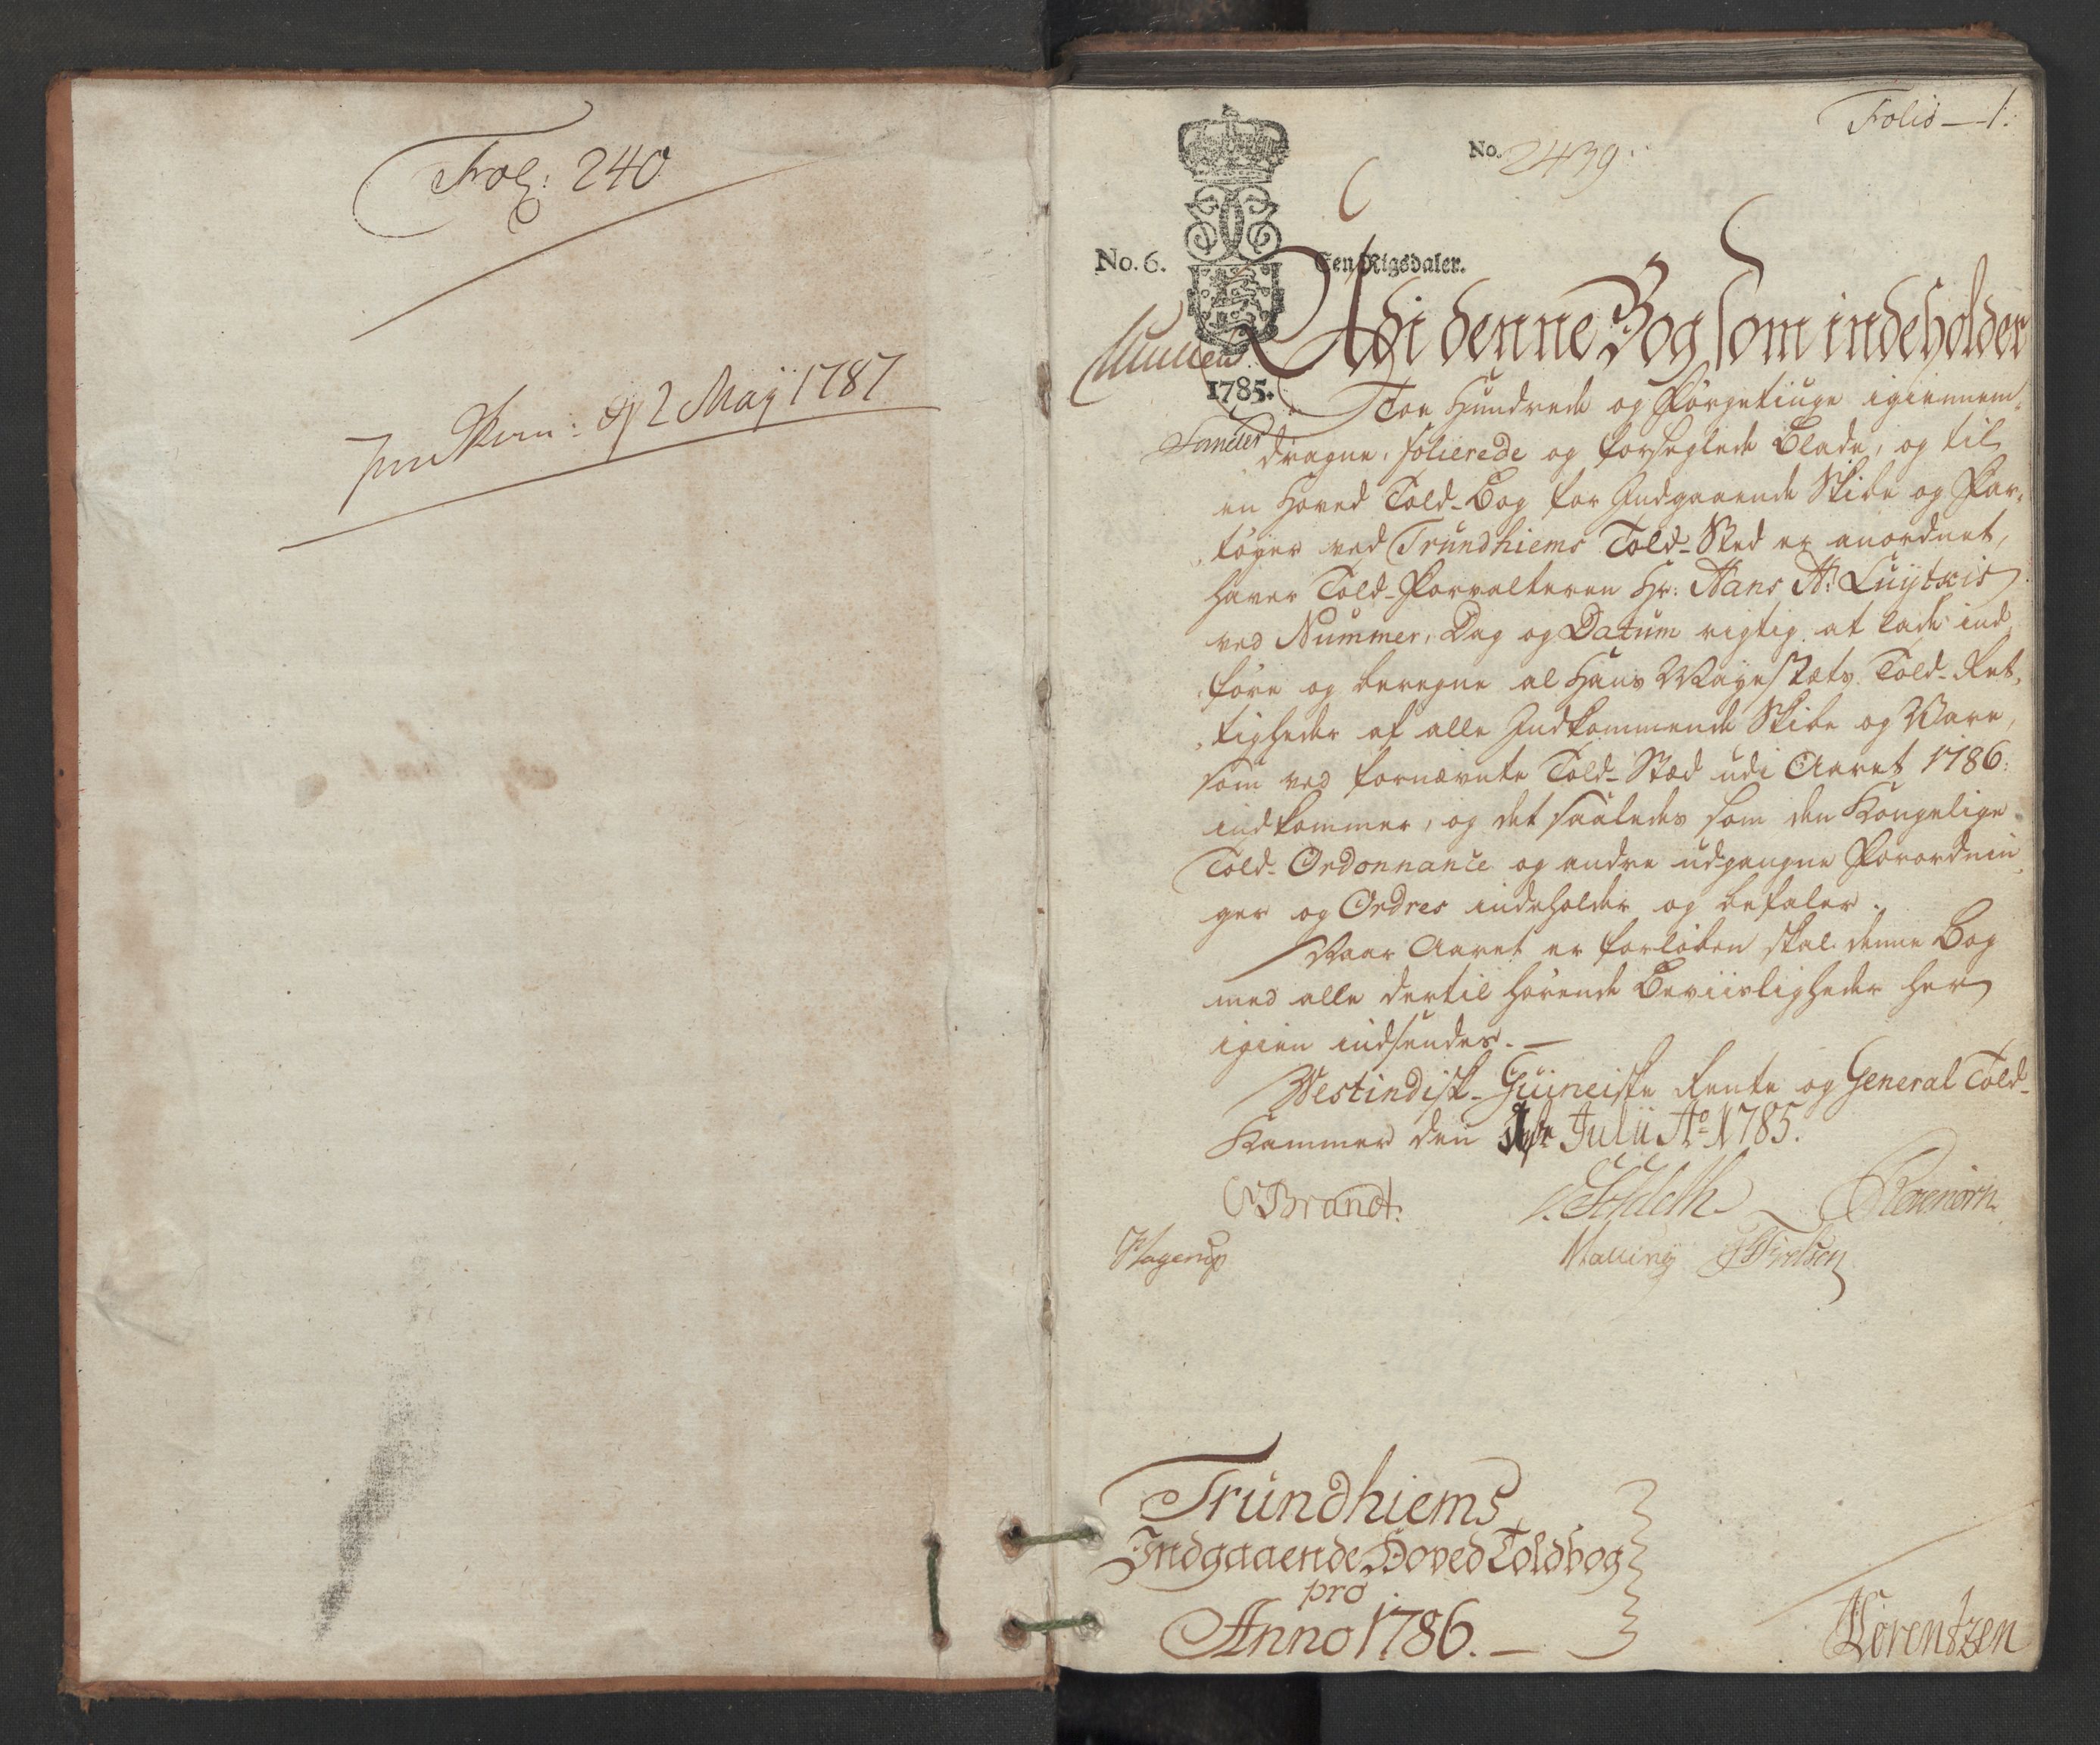 Fol: 240
2 May 1787
Folio 1.
No. 2439.
No. 6.
Een Rigsdaler.
1785.
Udi denne Bog som indeholder
Toe Hundrede og Førgetiuge igiennem-
dragne, folierede og forseglede Blade, og til
en Hoved Told-Bog for Indgaaende Skibe og Far-
tøyer ved Trundhiems Told-Sted er anordnet,
haver Told-Forvalteren Hr: Hans H: Luytkis
ved Nummer, Dag og Datum rigtig at lade ind-
føre og beregne al Hans Mayestæts Told-Ret-
tigheder af alle Indkommende Skibe og Vare,
som ved fornævnte Told-Stæd udi Aaret 1786.
indkommer, og det saaledes som den Kongelige
Told-Ordonnance og andre udgangne Forordnin-
ger og Ordres indeholder og befaler.
Naar Aaret er forløben skal denne Bog
med alle dertil hørende Beviisligheder her
igien indsendes.
Westindisk-Guineiske Rente og General Told-
Kammer den Julii Ao 1785.
Brandt.
Hagerup
Malling
Trundhiems
Indgaaende Hoved Toldbog
pro
Anno 1786.
Lorentzen